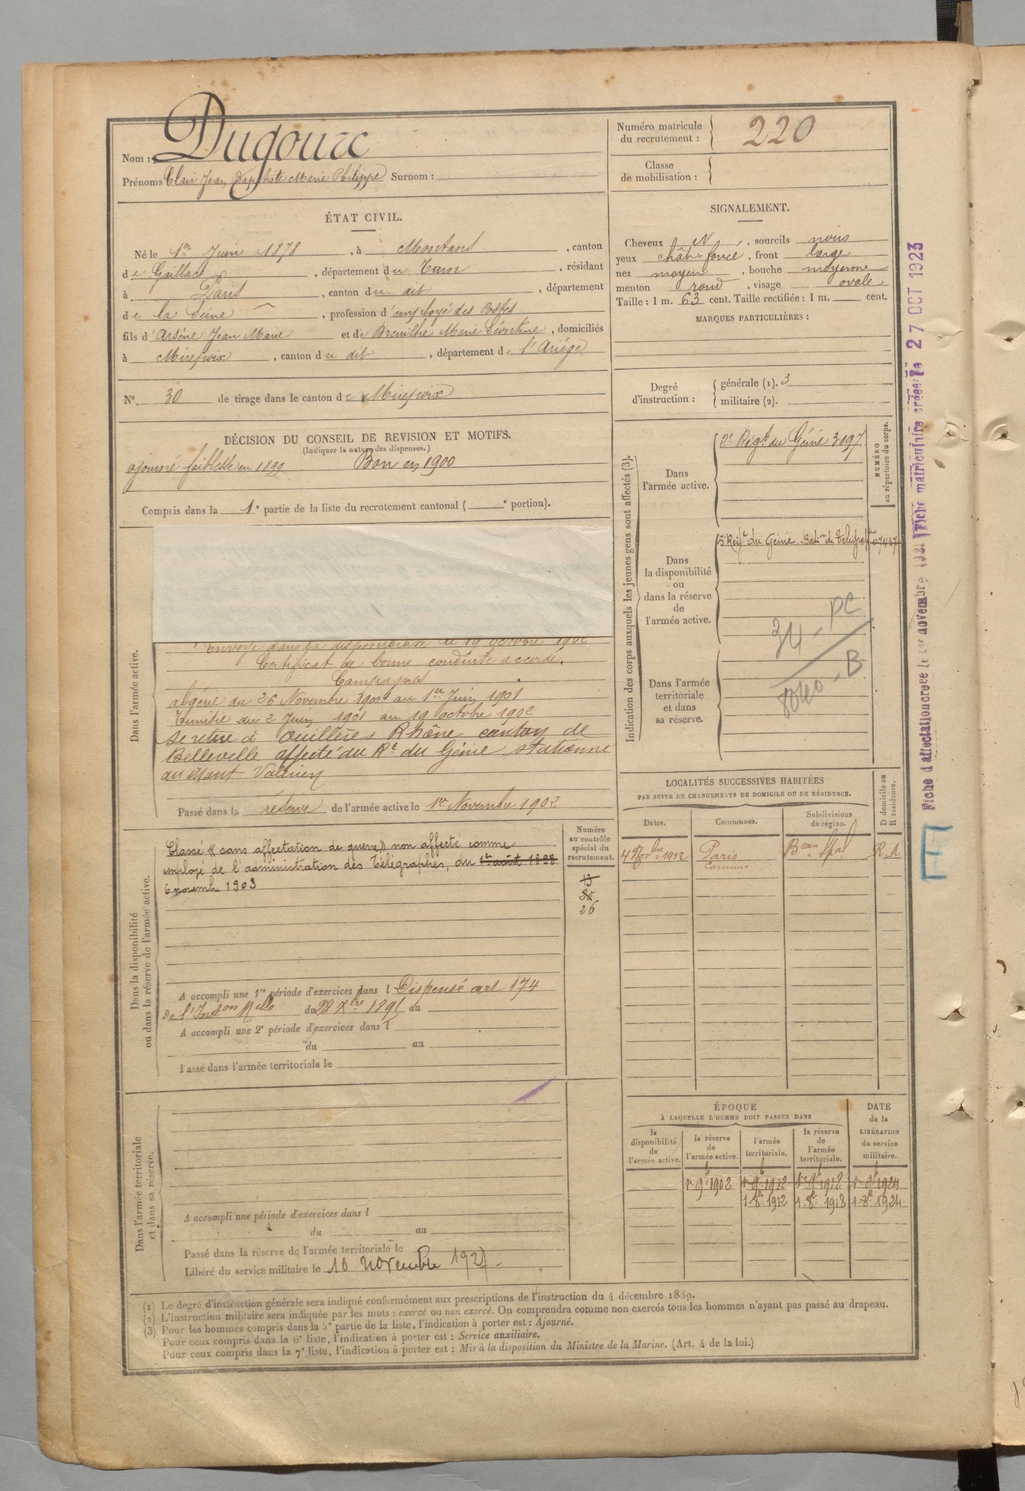 Nom : Dugourc
Prénoms Clair Jean Baptiste Marie Philippe Surnom :
Numéro matricule du recrutement : 220
Classe de mobilisation :
ÉTAT CIVIL.
Né le 1er Juin 1878, à Montans, canton
de Gaillac, département du Tarn, résidant
à Paris, canton du dit, département
de la Seine, profession d'employé des Postes
fils d'Arsène Jean Marie et de Marie Léontine, domiciliés
à Mirepoix, canton du dit, département de l'Ariège
N°. 30 de tirage dans le canton de Mirepoix
SIGNALEMENT.
Cheveux N, sourcils noirs
yeux chât. foncé, front large
nez moyen, bouche moyenne
menton rond, visage ovale
Taille : 1 m. 63 cent. Taille rectifiée : 1 m. cent.
MARQUES PARTICULIÈRES :
Degré d'instruction : générale (1). 3
militaire (2).
DÉCISION DU CONSEIL DE REVISION ET MOTIFS.
(Indiquer la nature des dispenses.)
ajourné faiblesse en 1899 Bon en 1900
Compris dans la 1e partie de la liste du recrutement cantonal ( e portion).
Indication des corps auxquels les jeunes gens sont affectés (3).
NUMÉRO au répertoire du corps.
Dans l'armée active.
2e Régt du Génie 3097
Dans la disponibilité ou dans la réserve de l'armée active.
5 Régt du Génie Baton de
Dans l'armée territoriale et dans sa réserve.
34 - PC
B
Dans l'armée active.
Envoyé dans la disponibilité le 19 octobre 1902
Certificat de bonne conduite accordé.
Campagnes
algérie du 26 Novembre 1900 au 1er Juin 1901
Tunisie du 2 Juin 1901 au 19 octobre 1902
Se retire à Ouillères Rhône canton de
Belleville affecté au Rt du Génie stationné
au Mont Valérien
Passé dans la réserve de l'armée active le 1er Novembre 1902
Dans la disponibilité ou dans la réserve de l'armée active.
Classé « sans affectation de guerre » non affecté comme
employé de l'administration des Télégraphes, du 1er août 1898
6 novembre 1903
Numéro au contrôle spécial du recrutement.
26
A accompli une 1re période d'exercices dans l Dispensé art. 174
de l'Inston Melle du 28 Xbre 1895 au
A accompli une 2e période d'exercices dans l
du au
Passé dans l'armée territoriale le
LOCALITÉS SUCCESSIVES HABITÉES
PAR SUITE DE CHANGEMENTS DE DOMICILE OU DE RÉSIDENCE.
Dates. Communes. Subdivisions de région. D domicile ou R résidence.
4 Novbre 1912 Paris Beau Spal R.A
ÉPOQUE
À LAQUELLE L'HOMME DOIT PASSER DANS
DATE de la LIBÉRATION du service militaire.
la disponibilité de l'armée active.
la réserve de l'armée active.
l'armée territoriale.
la réserve de l'armée territoriale.
1 9b 1902 1 9b 1912 1 9b 1918 1 9b 1924
1 8e 1912 1 8e 1918 1 8e 1924
Dans l'armée territoriale et dans sa réserve.
A accompli une période d'exercices dans l
du au
Passé dans la réserve de l'armée territoriale le
Libéré du service militaire le 10 novembre 1927.
(1) Le degré d'instruction générale sera indiqué conformément aux prescriptions de l'instruction du 4 décembre 1889.
(2) L'instruction militaire sera indiquée par les mots : exercé ou non exercé. On comprendra comme non exercés tous les hommes n'ayant pas passé au drapeau.
(3) Pour les hommes compris dans la 5e partie de la liste, l'indication à porter est : Ajourné.
Pour ceux compris dans la 6e liste, l'indication à porter est : Service auxiliaire.
Pour ceux compris dans la 7e liste, l'indication à porter est : Mis à la disposition du Ministre de la Marine. (Art. 4 de la loi.)
Fiche d'affectation créée le 1er novembre 1921 Fiche matriculaire créée le 27 OCT 1923